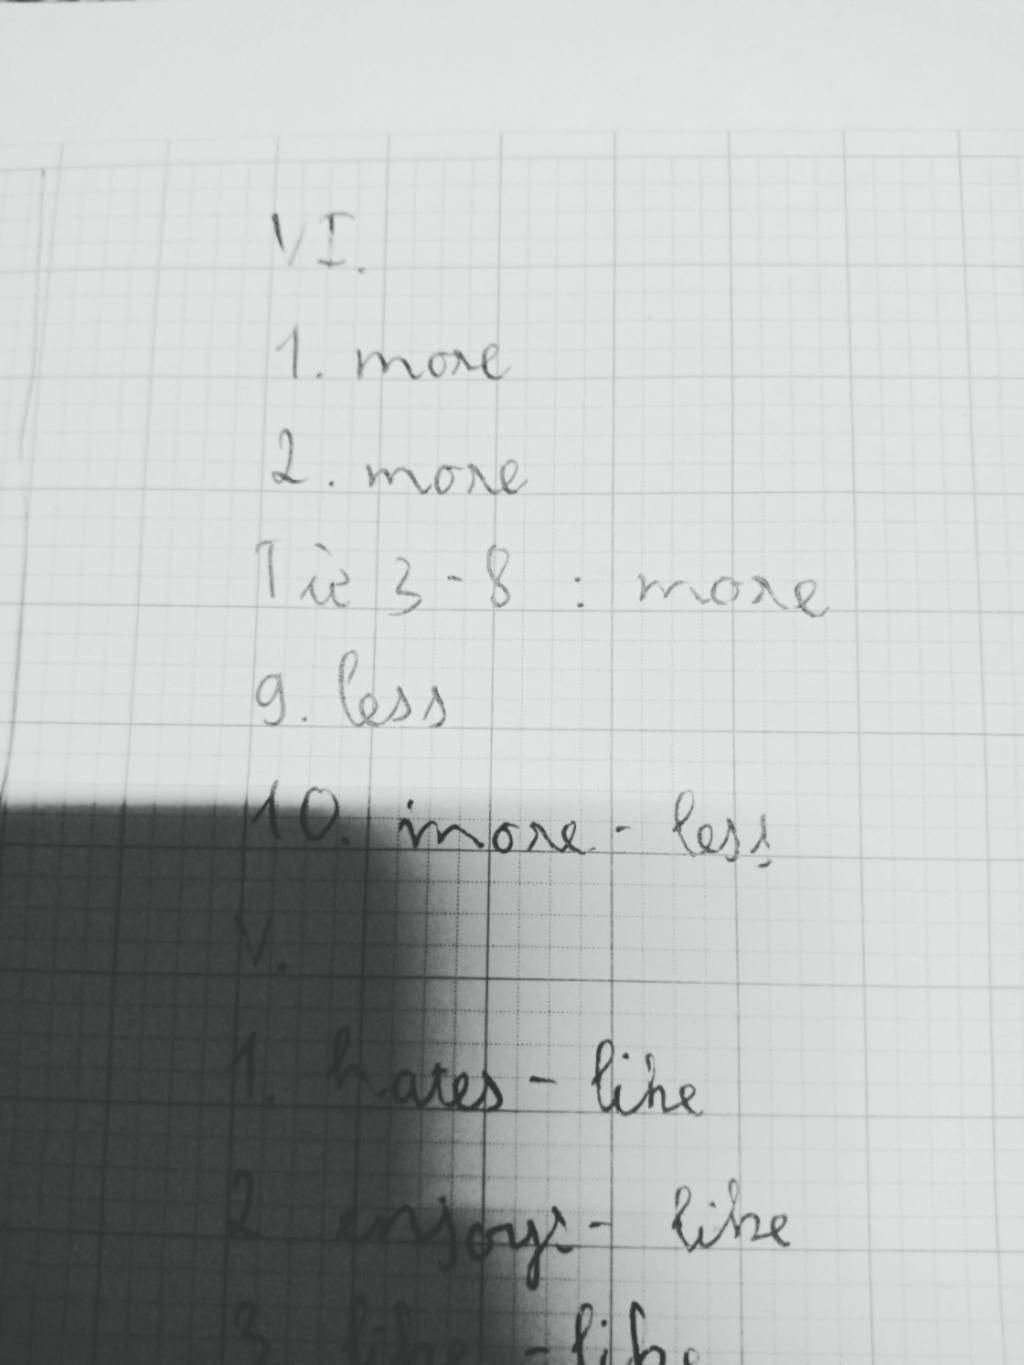 VI.
1. more
2. more
Từ 3-8 : more
9. less
10. more - less
V.
1. hates - like
2. enjoys - like
3. like - like